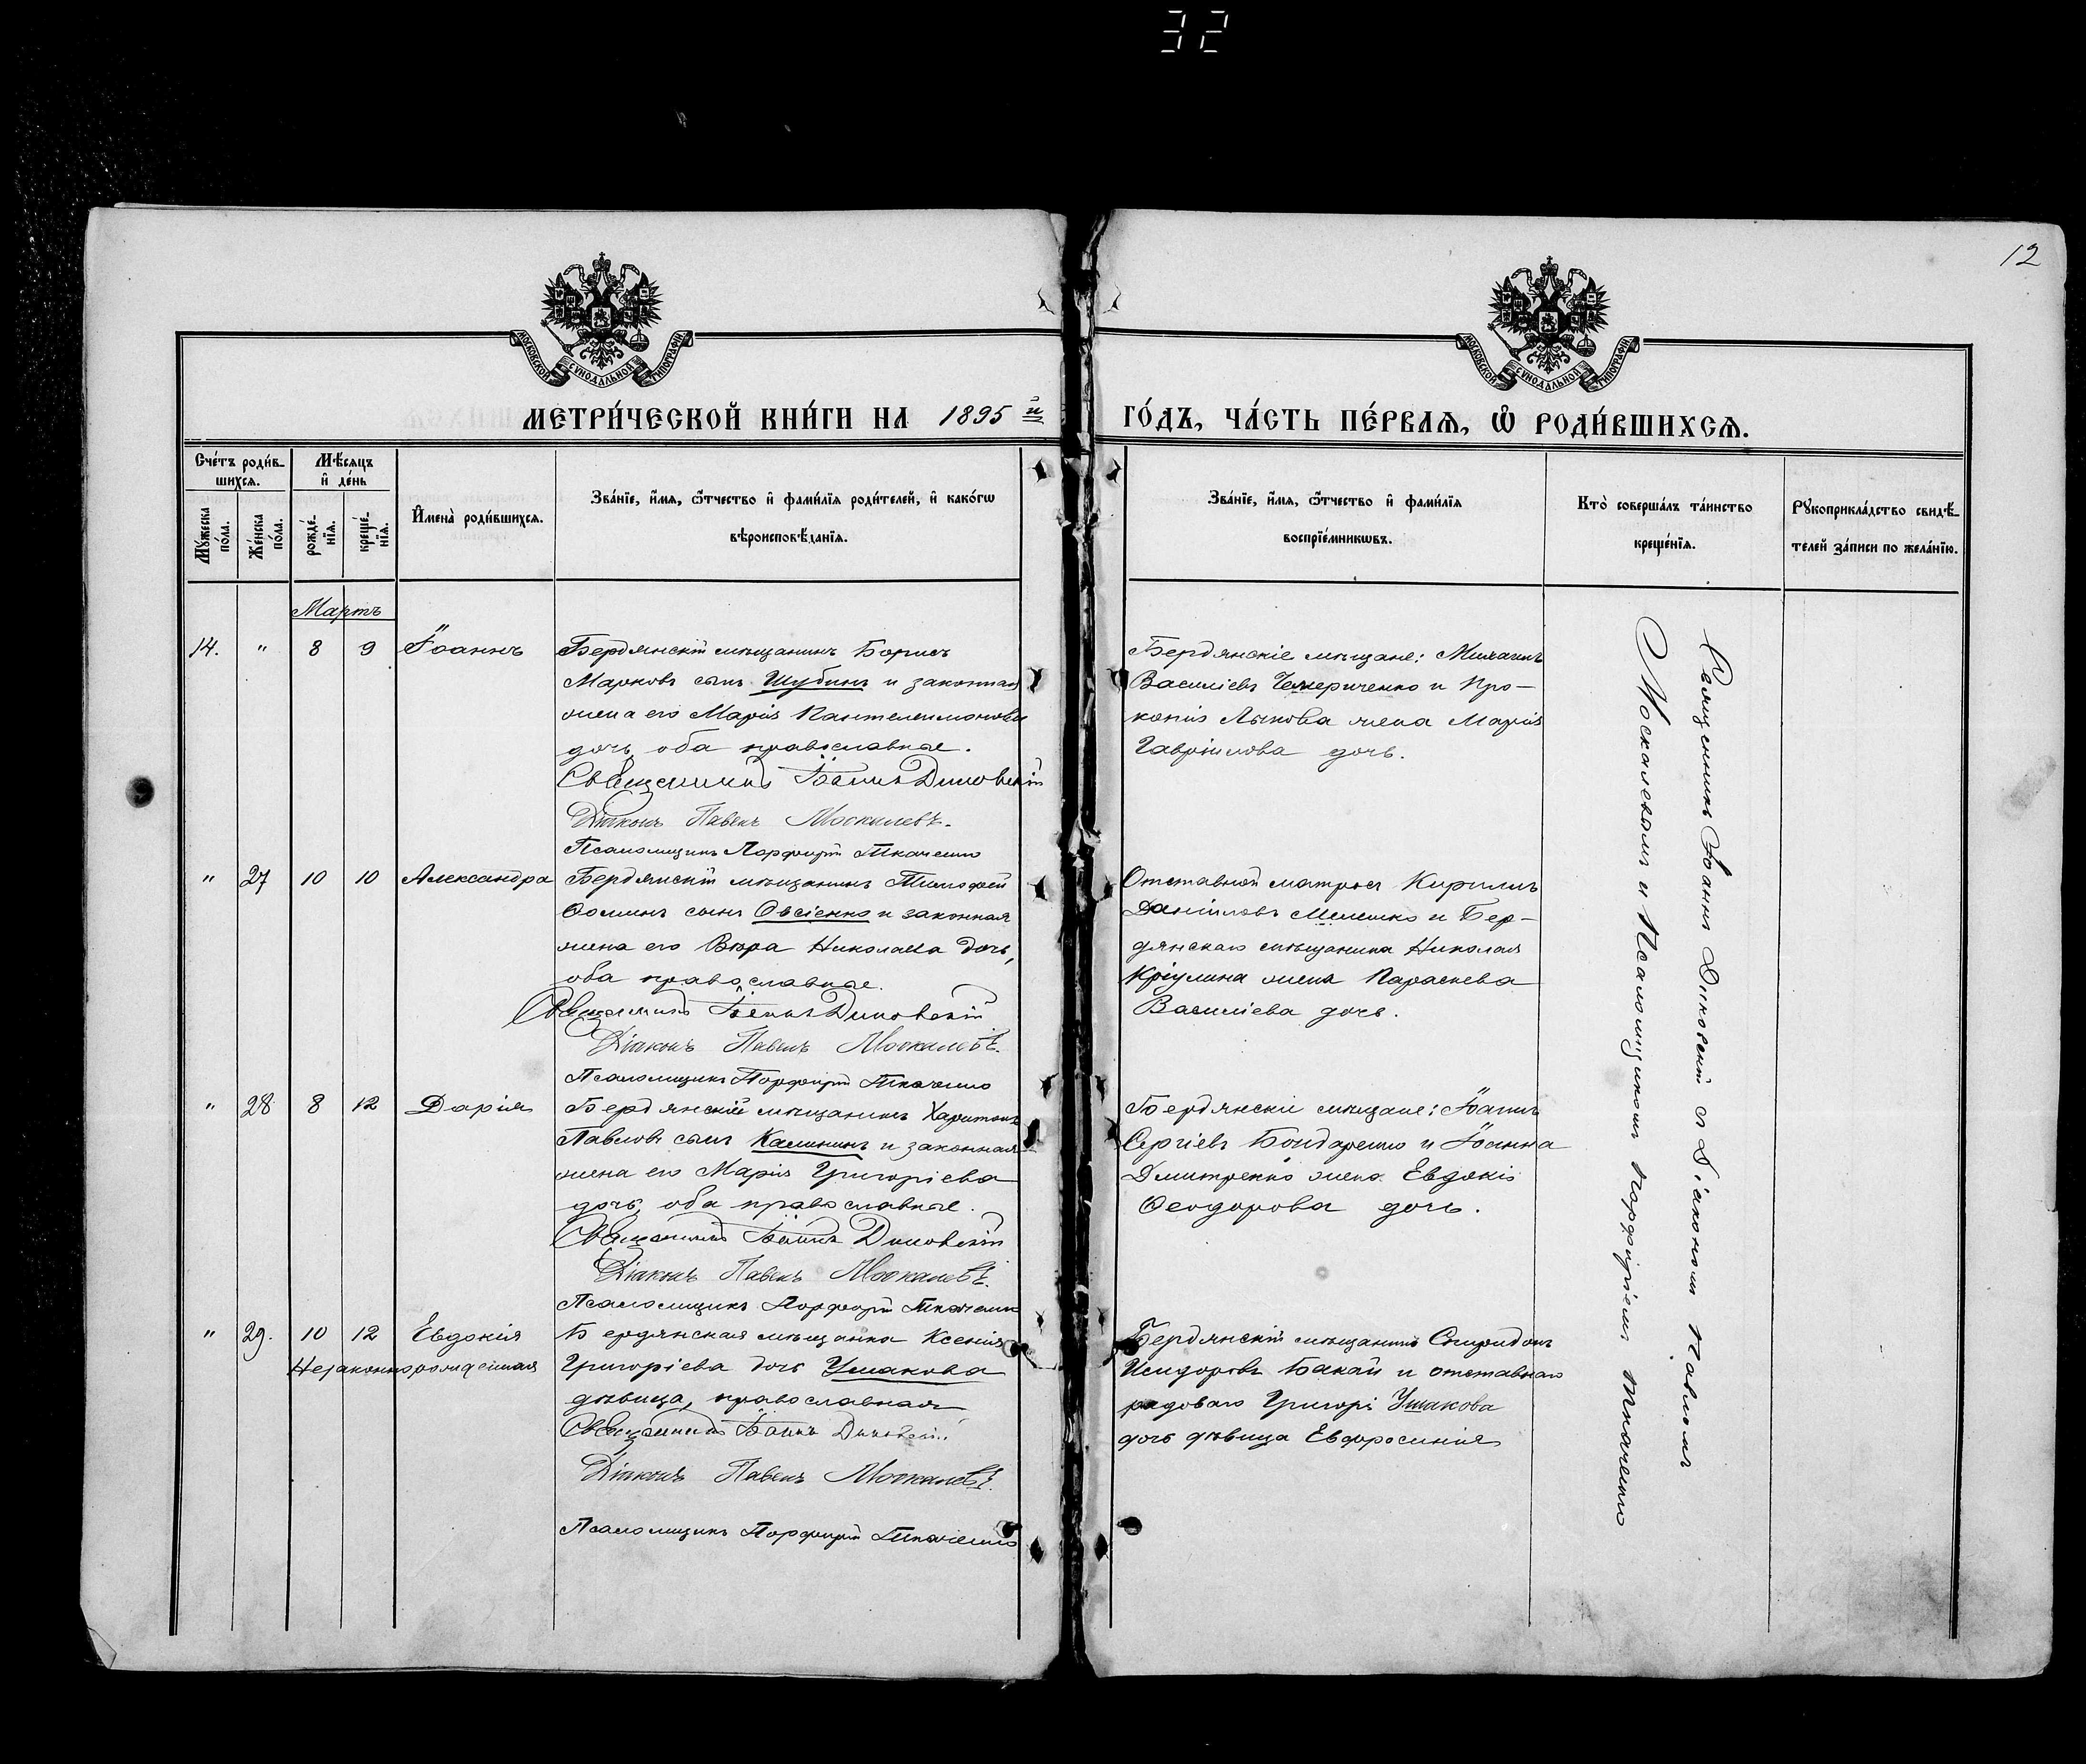 32
12
МОСКОВСКОЙ СУНОДАЛЬНОЙ ТИПОГРАФІИ.
МОСКОВСКОЙ СУНОДАЛЬНОЙ ТИПОГРАФІИ.
МЕТРИ́ЧЕСКОЙ КНИ́ГИ НА 1895 й ГО́ДЪ, ЧА́СТЬ ПЕ́РВАЯ, Ѡ҆ РОДИ́ВШИХСЯ.
Сче́тъ роди́в-
шихся.
Мꙋ́жеска по́ла.
Же́нска по́ла.
Мѣ́сяцъ
и҆ де́нь
рожде́-
нїя.
креще́-
нїя.
И҆мена̀ роди́вшихся.
Зва́нїе, и҆́мя, ѻ҆́тчество и҆ фами́лїя роди́телей, и҆ како́гѡ
вѣроисповѣ́данїя.
Зва́нїе, и҆́мя, ѻ҆́тчество и҆ фами́лїя
воспрїе́мникѡвъ.
Кто̀ соверша́лъ та́инство
креще́нїя.
Рꙋкоприкла́дство свидѣ́-
телей за́писи по жела́нїю.
Мартъ
14. " 8 9 Іоаннъ
Бердянскій мѣщанинъ Борисъ
Марковъ сынъ Шубинъ и законная
жена его Марія Пантелеимонова
дочь, оба православные.
Священникъ Іоаннъ Диковскій
Діаконъ Павелъ Москалевъ.
Псаломщикъ Порфирій Ткаченко
Бердянскіе мѣщане: Михаилъ
Василіевъ Чемериченко и Про-
копія Лыкова жена Марія
Гавріилова дочь.
" 27 10 10 Александра
Бердянскій мѣщанинъ Тимофей
Ѳоминъ сынъ Овсіенко и законная
жена его Вѣра Николаева дочь,
оба православные.
Священникъ Іоаннъ Диковскій
Діаконъ Павелъ Москалевъ.
Псаломщикъ Порфирій Ткаченко
Отставной матросъ Кириллъ
Даніиловъ Мелешко и Бер-
дянскаго мѣщанина Николая
Кріулина жена Параскева
Василіева дочь.
" 28 8 12 Дарія
Бердянскій мѣщанинъ Харитонъ
Павловъ сынъ Калининъ и законная
жена его Марія Григоріева
дочь, оба православные.
Священникъ Іоаннъ Диковскій
Діаконъ Павелъ Москалевъ.
Псаломщикъ Порфирій Ткаченко
Бердянскіе мѣщане: Іоаннъ
Сергіевъ Бондаренко и Іоанна
Дмитренко жена Евдокія
Ѳеодорова дочь.
" 29. 10 12 Евдокія
Незаконнорожденная
Бердянская мѣщанка Ксенія
Григоріева дочь Ушакова
дѣвица, православная
Священникъ Іоаннъ Диковскій
Діаконъ Павелъ Москалевъ.
Псаломщикъ Порфирій Ткаченко
Бердянскій мѣщанинъ Спиридонъ
Исидоровъ Бакай и отставного
рядоваго Григорія Ушакова
дочь дѣвица Евфросинія
Священникъ Іоаннъ Диковскій съ Діакономъ Павломъ
Москалевымъ и Псаломщикомъ Порфиріемъ Ткаченко